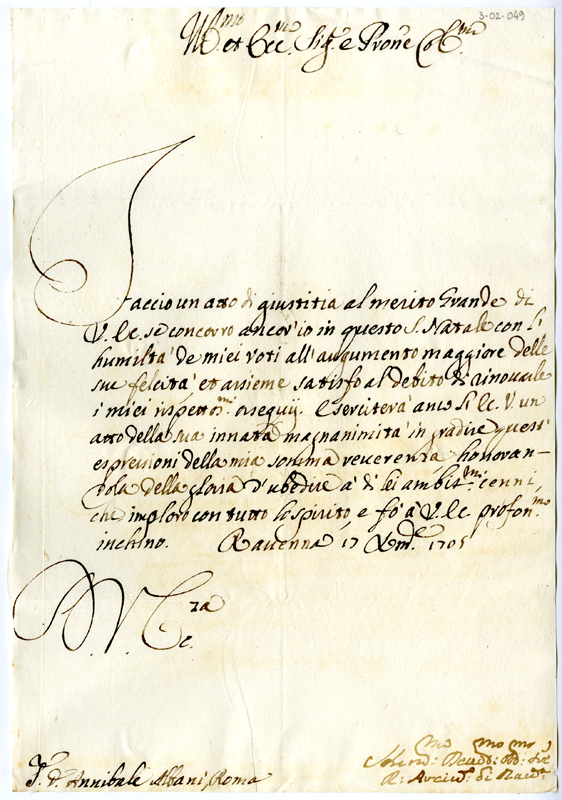 3-02-049
Ill.mo et Ecc.mo Sig.r e Pron.e Col.mo
Faccio un atto di giustitia al merito Grande di
V. Ec. se concorro ancor'io in questo S. Natale con l'
humiltà de miei voti all'augumento maggiore delle
sue felicità et assieme satisfo al debito di rinovarle
i miei rispettos.mi ossequij. Eserciterà anco l'Ec. V. un
atto della sua innata magnanimità in gradire questi
espressioni della mia somma reverenza honoran-
dola della gloria d'ubedire à di lei ambit.mi cenni,
che imploro con tutto lo spirito, e fò à V. Ec. profon.mo
inchino. Ravenna 17 Xmb.e 1705
D. V. Ecc.za
S.r D. Annibale Albani, Roma
di Rav.a